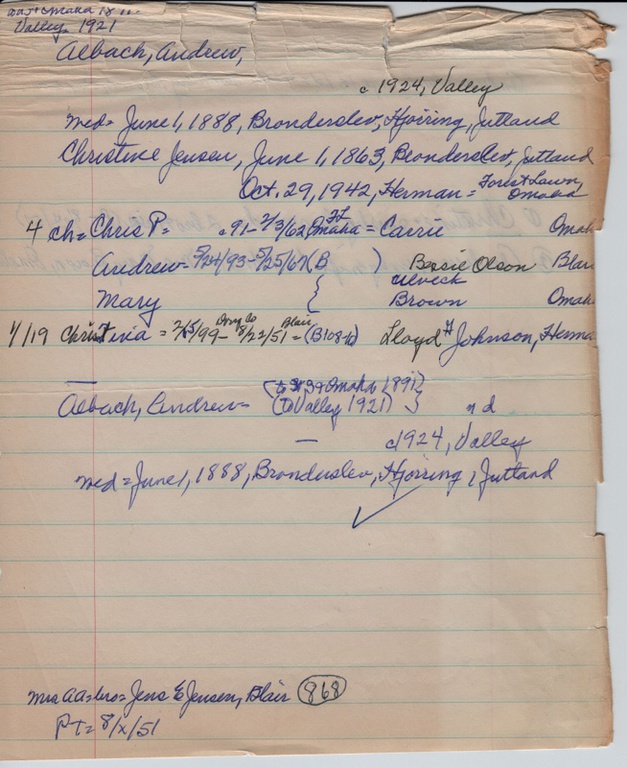 Valley, 1921
Aebach, Andrew,
c 1924, Valley
med = June 1, 1888, Bronderslev, Hjorring, Jutland
Christine Jensen, June 1, 1863, Bronderslev, Jutland
Oct. 29, 1942, Herman = Forest Lawn, Omaha
4 ch = Chris P = c 91 - 2/3/62, Omaha FL = Carrie Omah
Andrew = 5/24/93 - 5/25/67 (B ) Bessie Olson Blair
Mary { Ulveck
Brown Omah
4/19 Christina = 2/15/99 - Doug Co 8/22/51 = Blair (B108-b) Lloyd H Johnson, Herma
Aebach, Andrew = Omaha 1891)
(To Valley 1921) } nd
— c 1924, Valley
med = June 1, 1888, Bronderslev, Hjorring, Jutland
Mrs AA = bro = Jens E Jensen, Blair 868
PT = 8/x/51